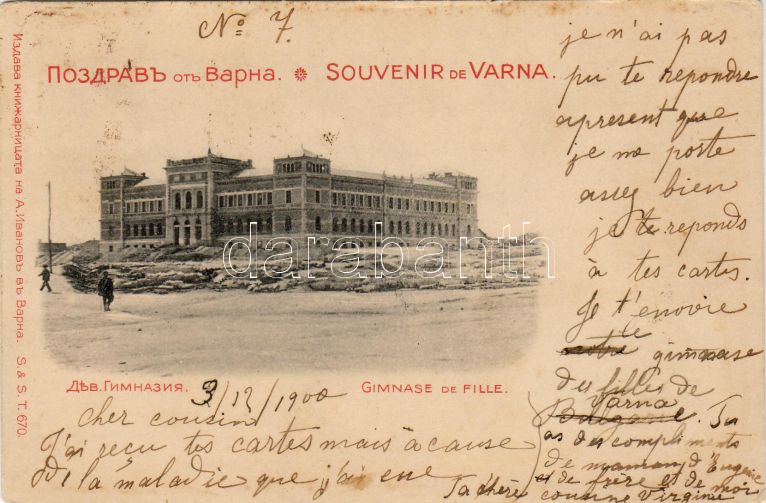 Nº 7
ПОЗДРАВЪ отъ ВАРНА. SOUVENIR DE VARNA.
Издава книжарницата на А. Ивановъ въ Варна. S. & S. T. 670.
darabanth
ДѢВ. ГИМНАЗИЯ.
GIMNASE DE FILLE.
3/12/1900
cher cousin
J'ai reçu tes cartes mais à cause
de la maladie que j'ai eue
je n'ai pas
pu te repondre
apresent que
je me porte
assez bien
je te reponds
à tes cartes.
Je t'envoire
le
gimnase
des filles de
Varna
Tu
as des compliments
de maman, d'Eugenie
et de frère et de moi
Ta chère cousin Virginie